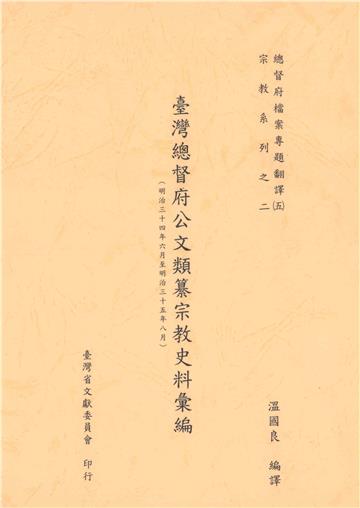 總督府檔案專題翻譯(五)
宗教系列之二
臺灣總督府公文類纂宗教史料彙編
(明治三十四年六月至明治三十五年八月)
溫國良 編譯
臺灣省文獻委員會 印行